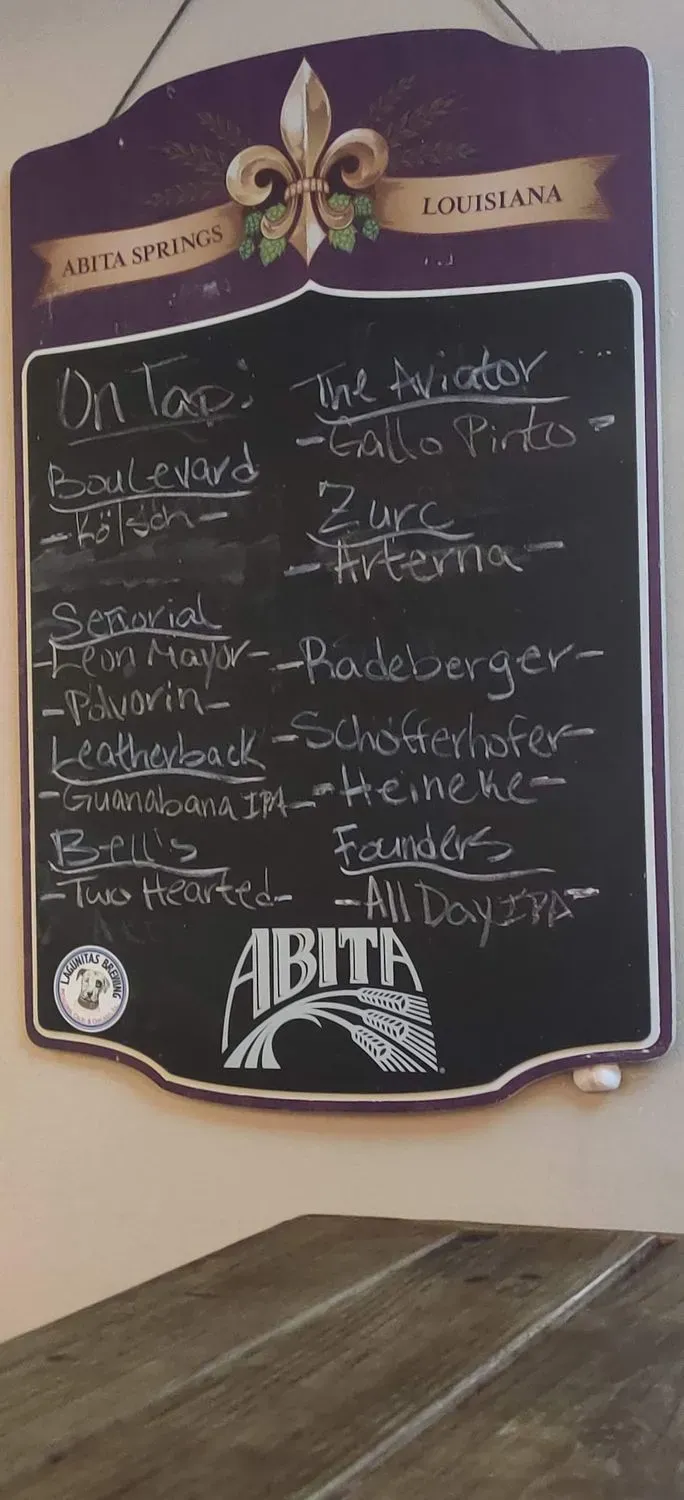 ABITA SPRINGS
LOUISIANA
On Tap:
Boulevard
-Kölsch-
Señorial
-Leon Mayor-
-Polvorin-
Leatherback
-Guanabana IPA-
Bell's
-Two Hearted-
The Aviator
-Gallo Pinto-
Zurc
-Arterna-
-Radeberger-
-Schöfferhofer-
-Heineke-
Founders
-All Day IPA-
LAGUNITAS BREWING
ABITA